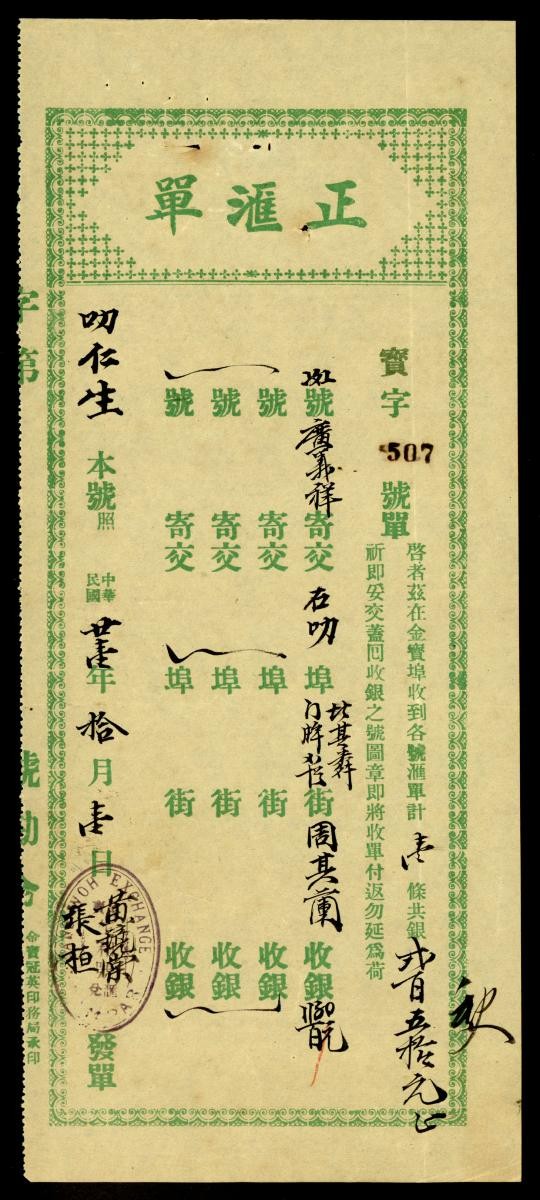 正滙單
寶字507號單
啓者茲在金寶埠收到各號滙單計壹條共銀弍百五拾元正
祈即妥交蓋囘收銀之號圖章即將收單付返勿延爲荷
號廣義祥寄交石叻埠街周其蘭收銀
號寄交埠街收銀
號寄交埠街收銀
號寄交埠街收銀
叻仁生本號照
中華民國廿壹年拾月壹日發單
張桓
EXCHANGE
字第
號勘合
金寶冠英印務局承印